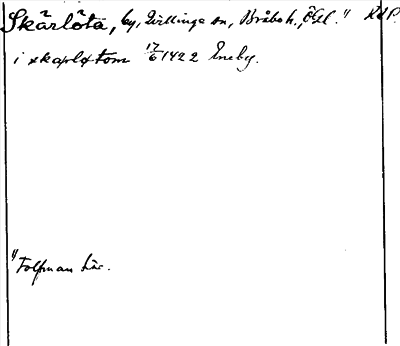 Skärlöta, by, Kvillinge sn, Bråbo h., Ögl. 1) RAP.
i skarløtom 17/6 1422 Eneby.
1) Tolfman här.